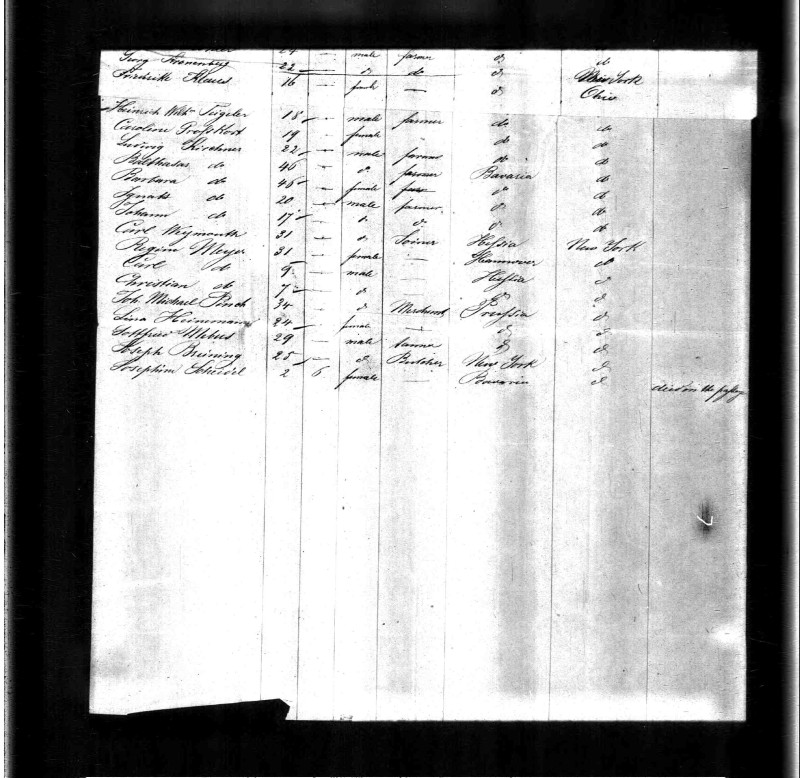 24 — male farmer d do
Georg Kronenberg 22 — d do d New York
Friedricke Klaus 16 — female — d Ohio
Heinrich Wilh. Tegeler 18 — male farmer do do
Caroline Großkort 19 — female — do do
Ludwig Kirchner 22 — male farmer do do
Balthasar do 46 — d farmer Bavaria do
Barbara do 45 — female d do
Ignatz do 20 — male farmer d do
Johann do 17 — d d d do
Carl Weymouth 31 — d Joiner Hessia New York
Regine Meyer 31 — female — Hannover do
Carl do 9 — male — Hessia d
Christian do 7 — d d d
Joh. Michael Pinch 34 — d Merchant Preussia d
Lina Heinemann 24 — female — d d
Gottfried Mebus 29 — male d d
Joseph Brüning 25 — d Butcher New York d
Josephine Schädel 2 6 female — Bavaria d died on the passage